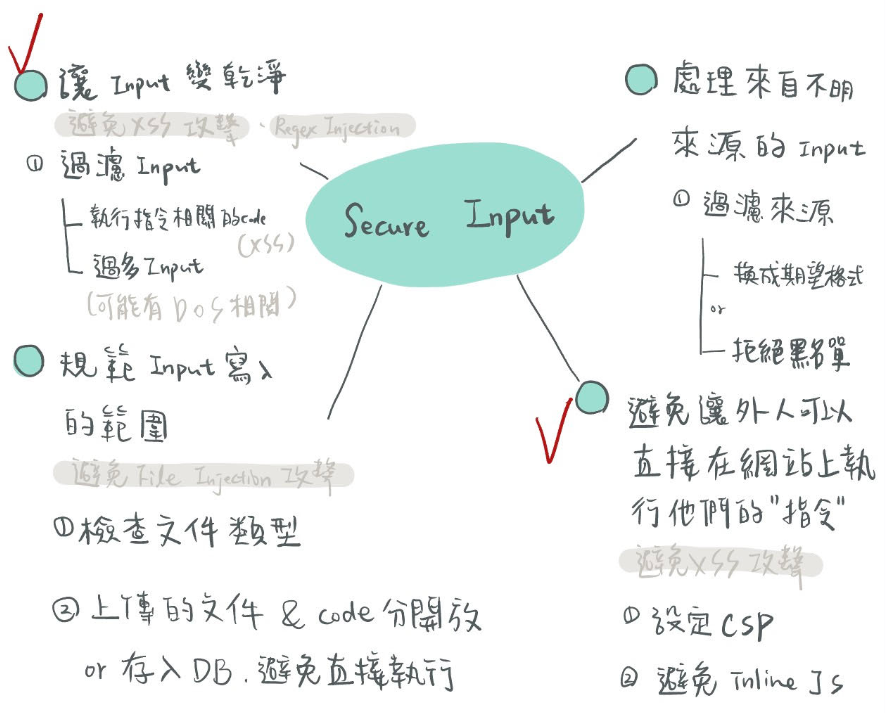 讓 Input 變乾淨
避免 XSS 攻擊、Regex Injection
① 過濾 Input
執行指令相關的code
(XSS)
過多 Input
(可能有 DoS 相關)
規範 Input 寫入
的範圍
避免 File Injection 攻擊
① 檢查文件類型
② 上傳的文件 & code 分開放
or 存入 DB、避免直接執行
Secure Input
處理來自不明
來源的 Input
① 過濾來源
換成期望格式
or
拒絕黑名單
避免讓外人可以
直接在網站上執
行他們的"指令"
避免XSS 攻擊
① 設定 CSP
② 避免 Inline JS